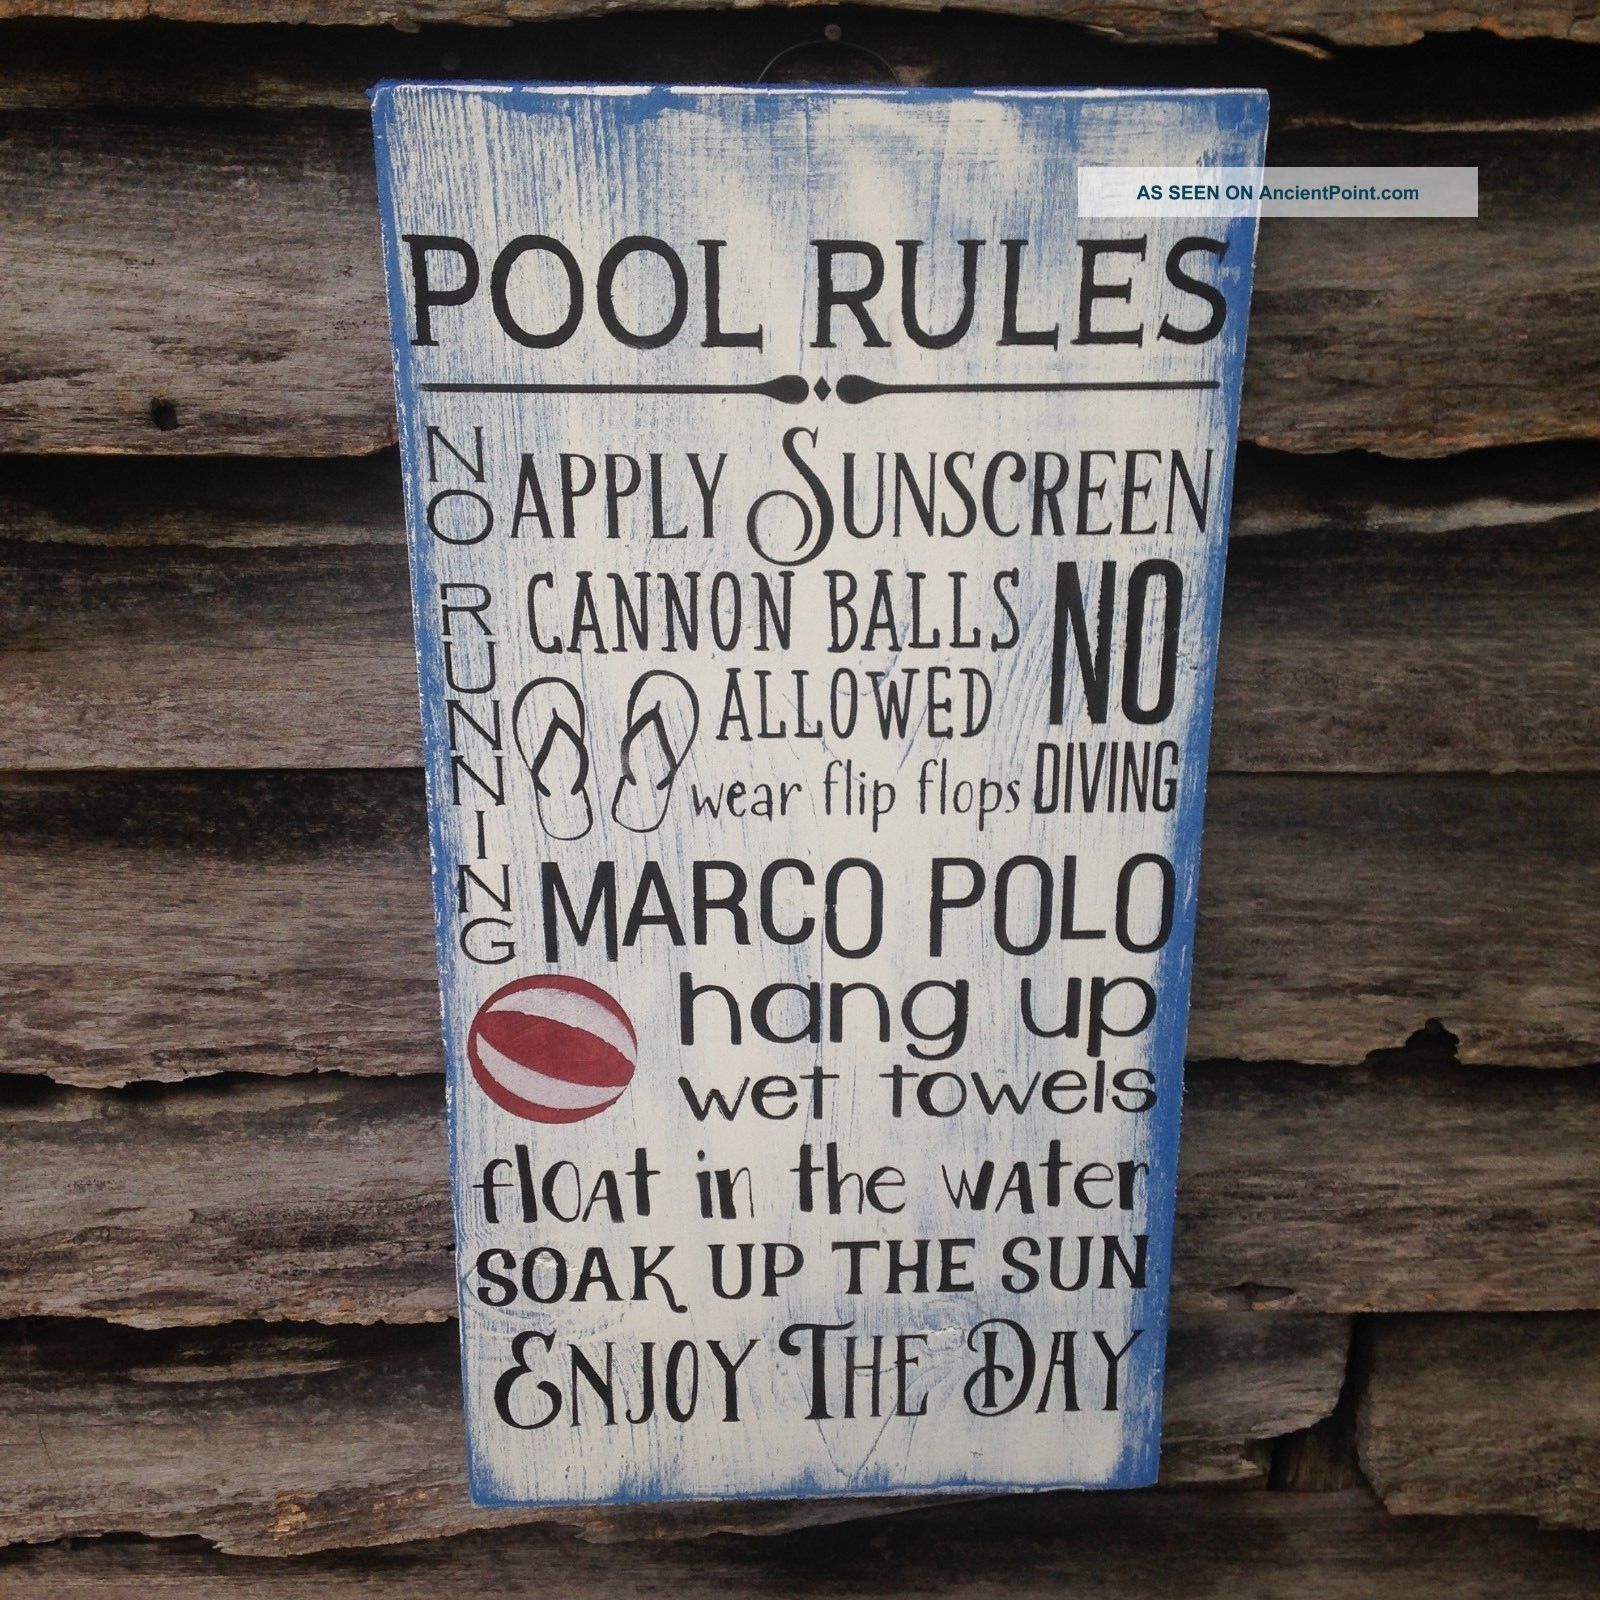 AS SEEN ON AncientPoint.com
POOL RULES
NO RUNNING
APPLY SUNSCREEN
CANNON BALLS
ALLOWED
NO
DIVING
wear flip flops
MARCO POLO
hang up
wet towels
flOAt in the wAter
SOAK UP THE SUN
ENJOY THE DAY